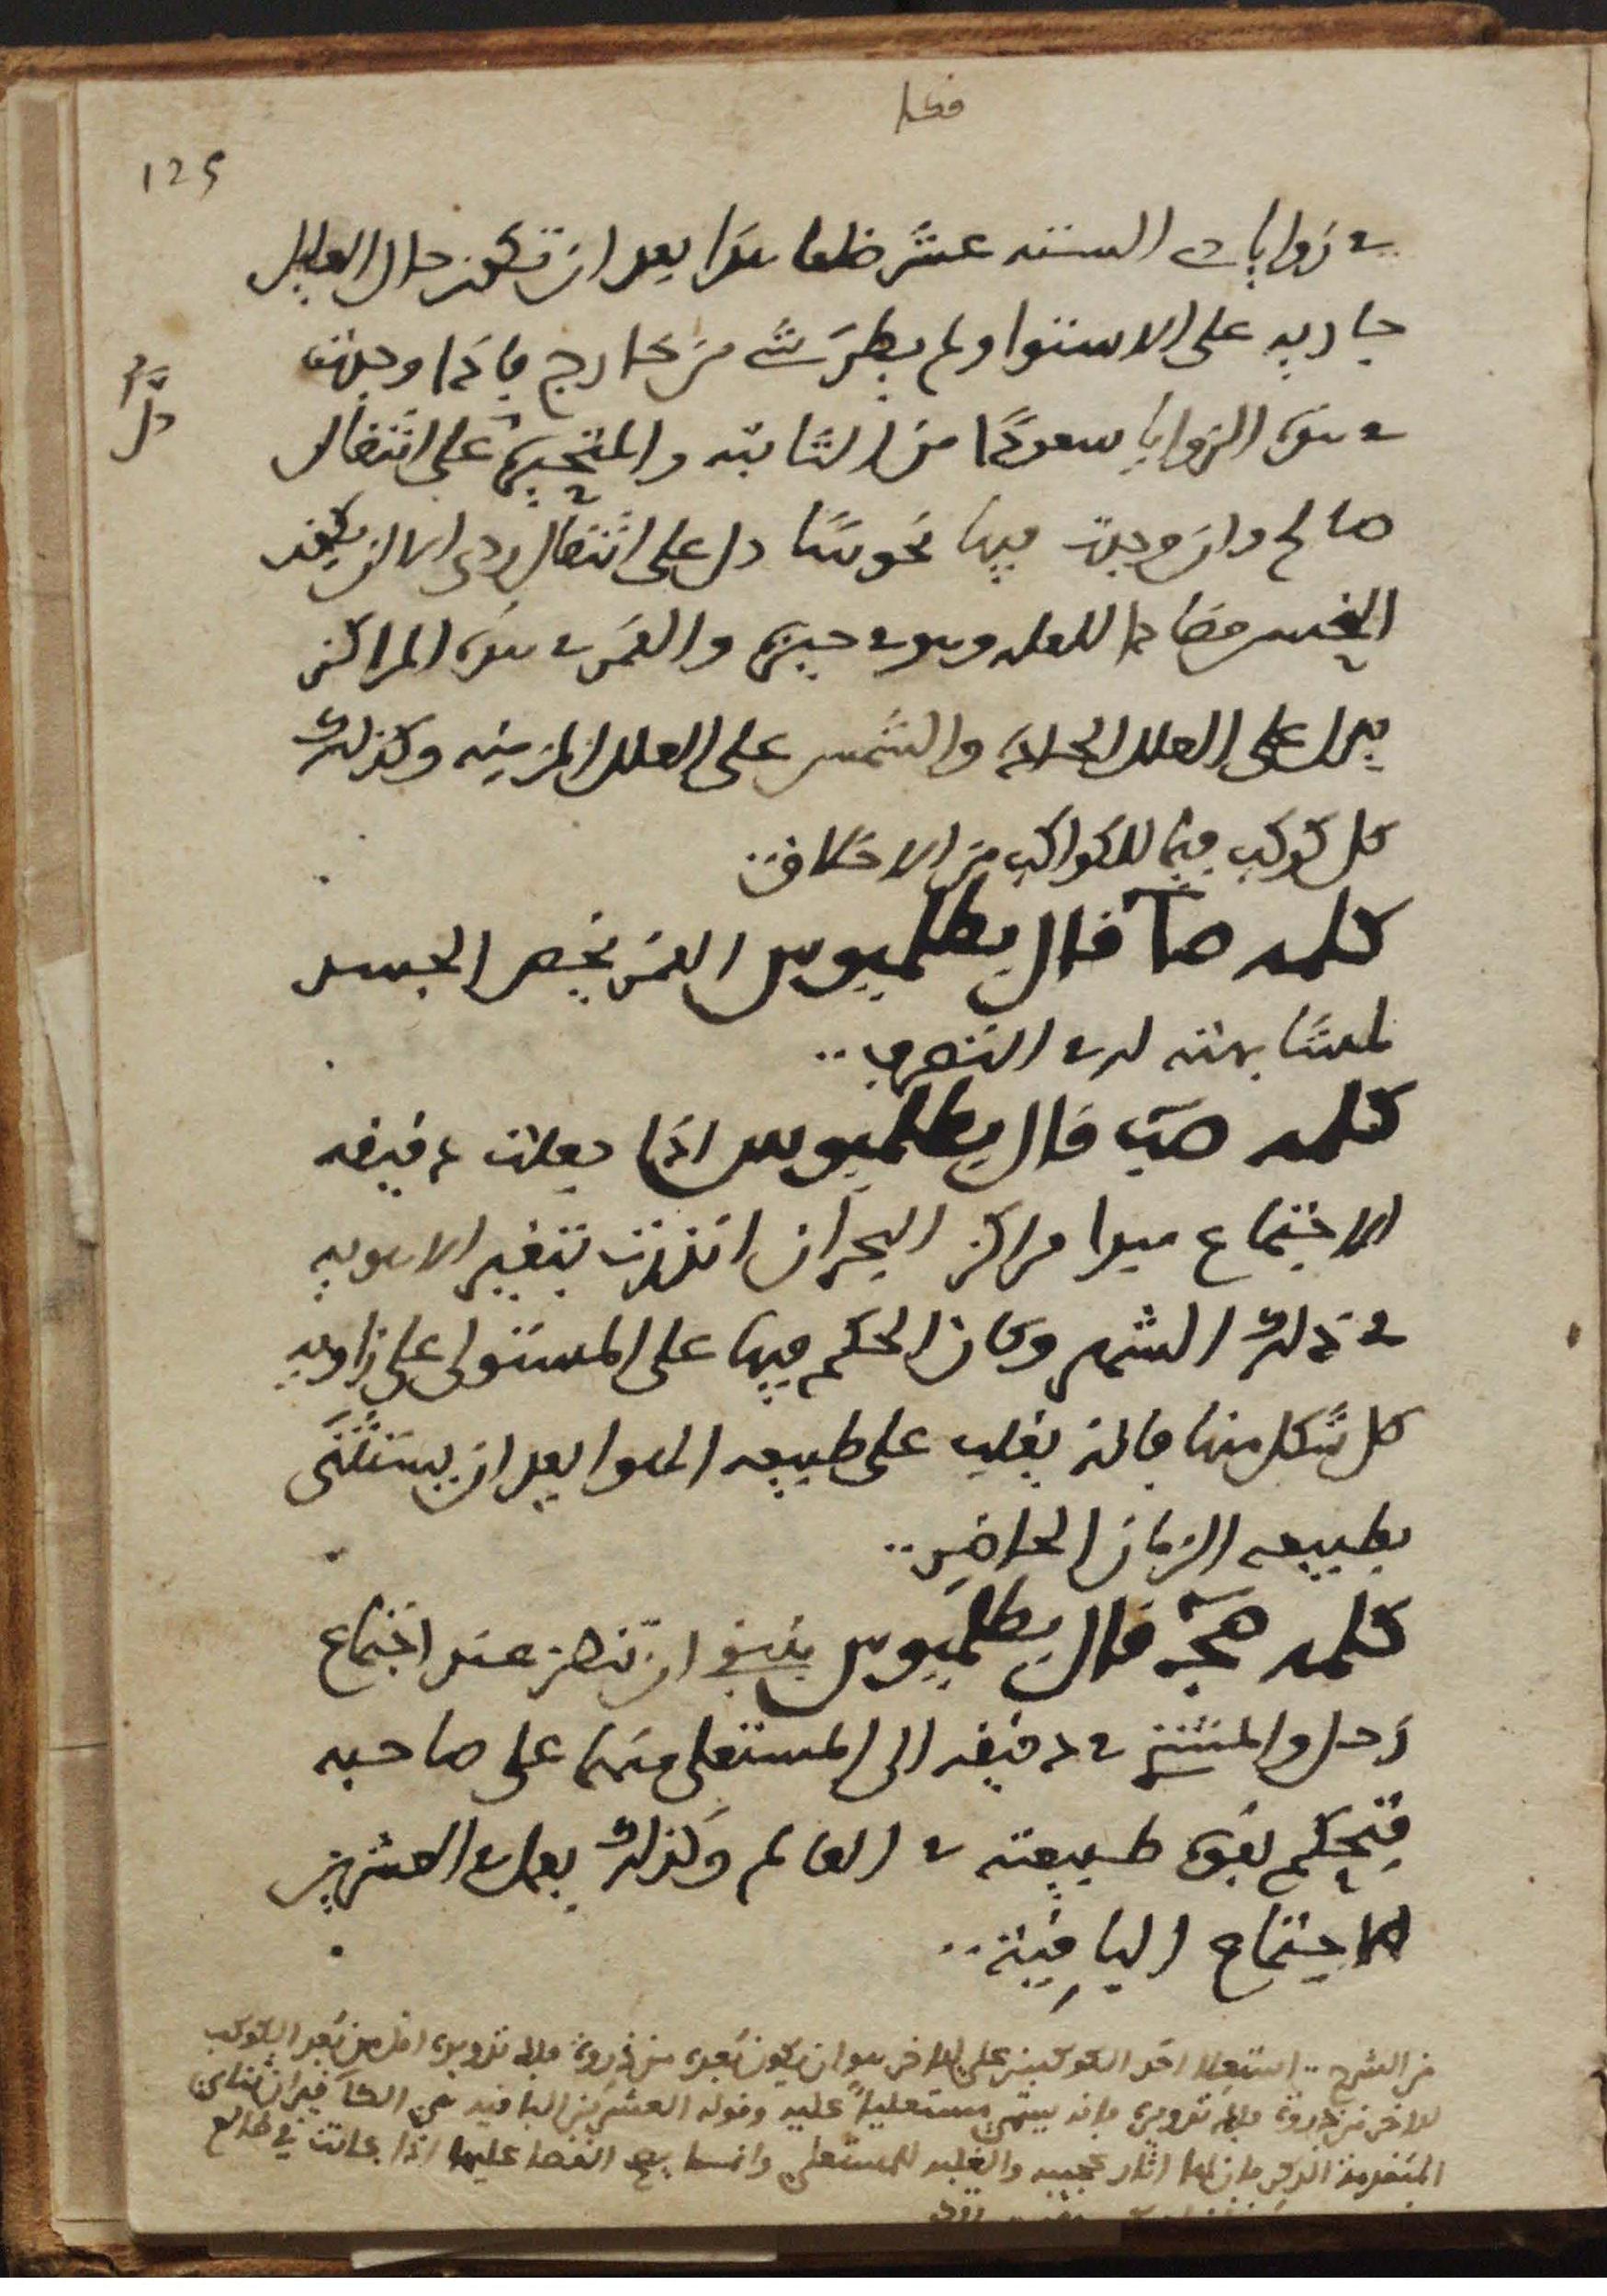 125
في زوايات الستة عشر ضلعا هذا بعد ان تكون حال العليل
جاريه على الاستوا ولم يطرا شي من خارج فاذا وجدت
في هذه الزوايا سعودًا من الثابته والمتحيره على انتقال
دلَّ
صالح وان وجدت فيها نحوسًا دل على انتقال ردى الا ان يكون
النحس مضادا للعله وهو في حيزه والقمر في هذه المراكز
يدل على العلل الحاده والشمس على العلل المزمنه وكذلك
كل كوكب فيما للكواكب من الاختلاف
كلمه صآ قال بطلميوس القمر يخص الجسد
لمشابهته له في التصرف
كلمه صب قال بطلميوس اذا جعلت دقيقه
الاجتماع مبدا مراكز البحران انذرت بتغير الاهويه
في ذلك الشهر وكان الحكم فيها على المستولى على زاويه
كل شكل منها فانه يغلب على طبيعه الهوا بعد ان يستثنى
بطبيعه الزمان الحاضر
كلمه صج قال بطلميوس ينبغي ان تنظر عند اجتماع
زحل والمشتري في دقيقه الى المستعلى منهما على صاحبه
فتحكم بقوه طبيعته في العالم وكذلك يعمل في العشرين
الاجتماع الباقيه
من الشرح استعلا احد الكوكبين على الاخر هو ان يكون بُعده من ذروة فلك تدويره اقل من بُعد الكوكب
الاخر من ذروة فلك تدويره فانه يسمى مستعلياً عليه وقوله العشرين الباقيه هي
المتقدمة الذكر فان لها اثار عجيبه والغلبه للمستعلى وانما يصح القضا عليها اذا كانت في طالع